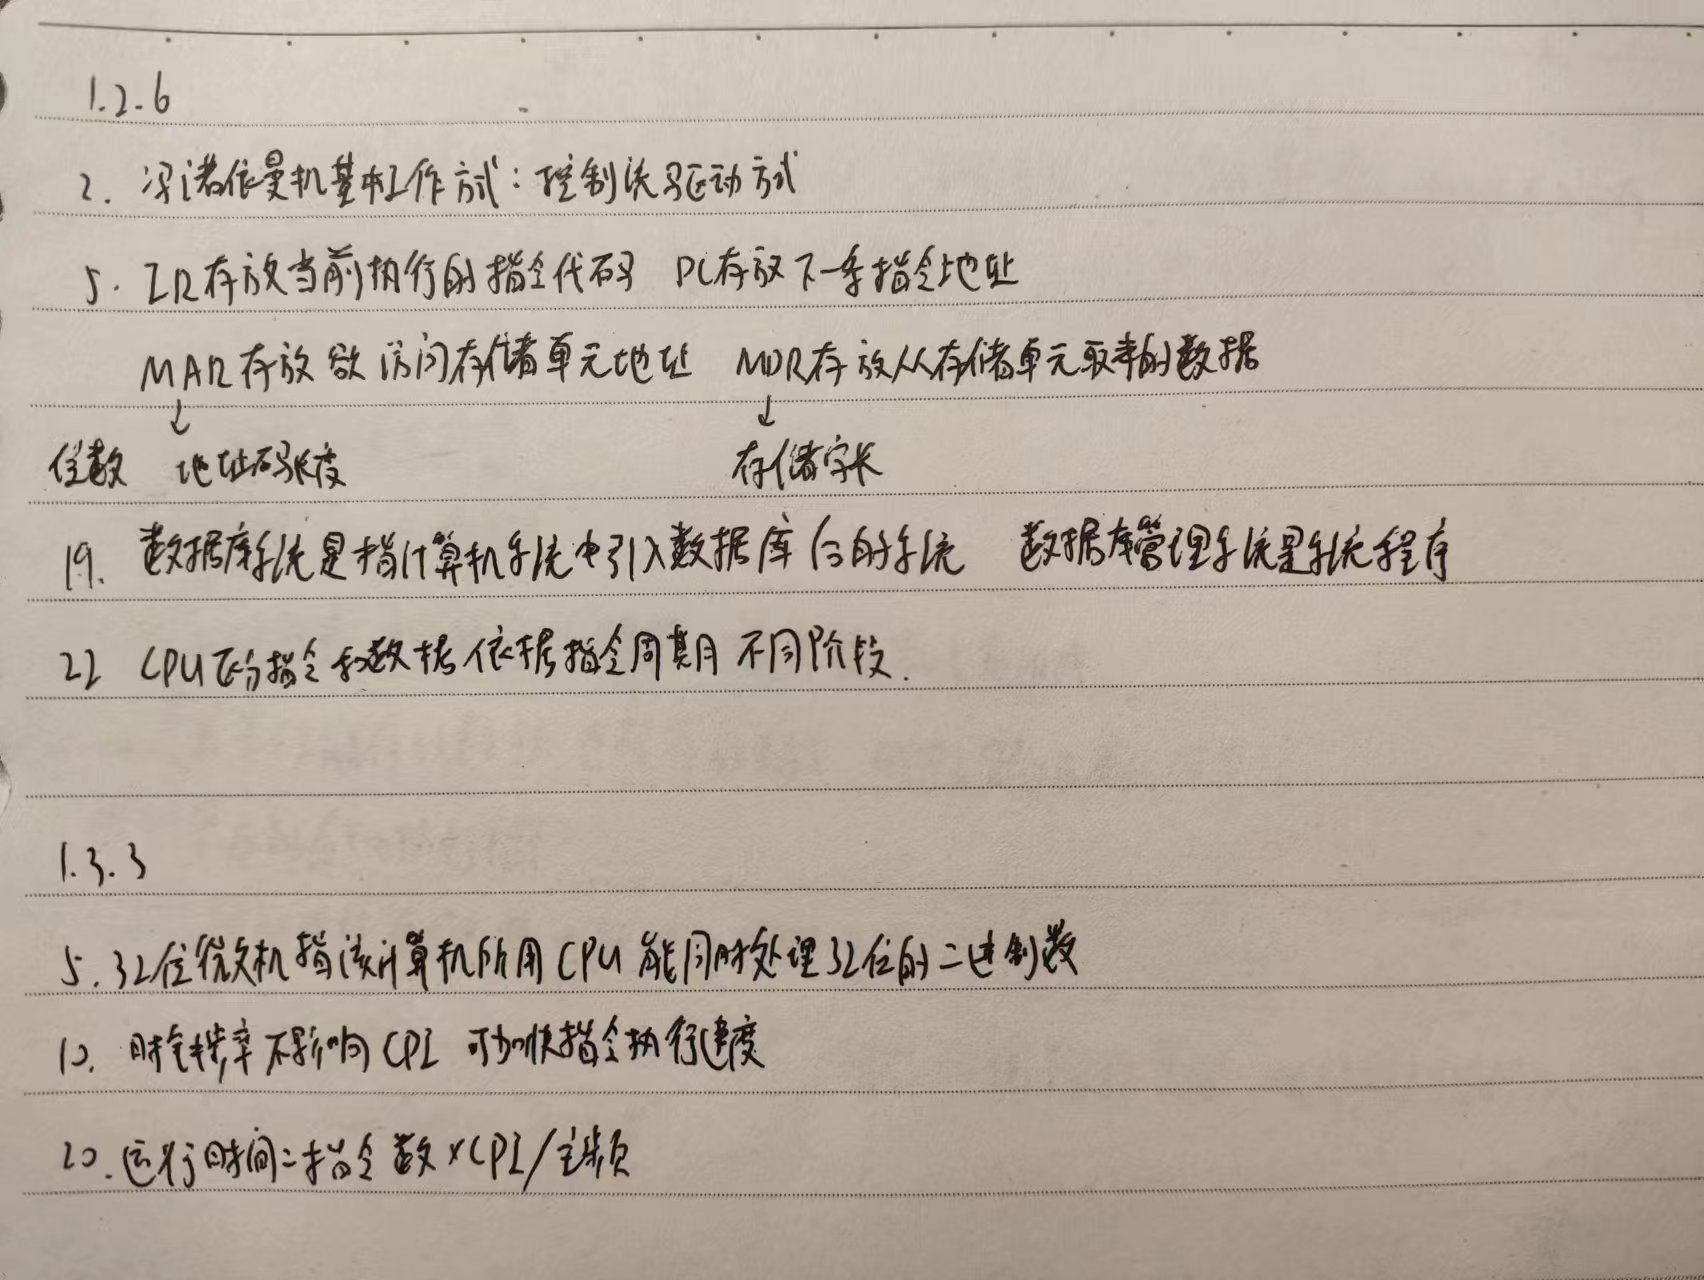 1.2.6
2. 冯诺依曼机基本工作方式：控制流驱动方式
5. IR存放当前执行的指令代码 PC存放下一条指令地址
MAR存放欲访问存储单元地址 MDR存放从存储单元取来的数据
↓ ↓
位数 地址码长度 存储字长
19. 数据库系统是指计算机系统中引入数据库后的系统 数据库管理系统是系统程序
22 CPU区分指令和数据依据指令周期不同阶段.
1.3.3
5. 32位微机指该计算机所用CPU能同时处理32位的二进制数
10. 时钟频率不影响CPI 可加快指令执行速度
20. 运行时间=指令数×CPI/主频